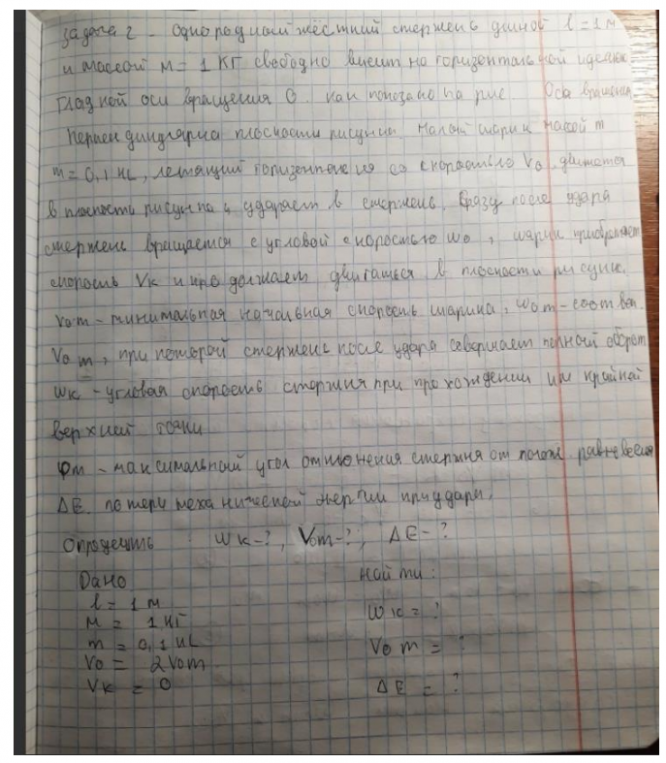 Задача 2 - Однородный жёсткий стержень длиной l = 1 м
и массой M = 1 КГ свободно висит на горизонтальной идеальн
гладкой оси вращения О. как показано на рис Оса вращения
перпендикулярна плоскости рисунка малой шарик массой m
m = 0,1 кг, летящий горизонтально со скоростью V0 движется
в плоскость рисунка и ударяет в стержень. Сразу после удара
стержень вращается с угловой скоростью ω0, шарик приобретает
скорость Vк и продолжает двигаться в плоскости рисунк.
V0m - минимальная начальная скорость шарика, ω0m - соотвеn
V0m, при которой стержень после удара совершает полный оборот
ωк - угловая скорость стержня при прохождении им крайней
верхней точки
φm - максимальный угол отклонения стержня от полож равновесия
ΔE потери механической энергии при ударе.
Определить : ωк-?, V0m-?, ΔE-?
Дано найти:
l = 1 м
M = 1 КГ ωк = ?
m = 0,1 кг
V0 = 2V0m V0m = ?
Vк = 0 ΔE = ?